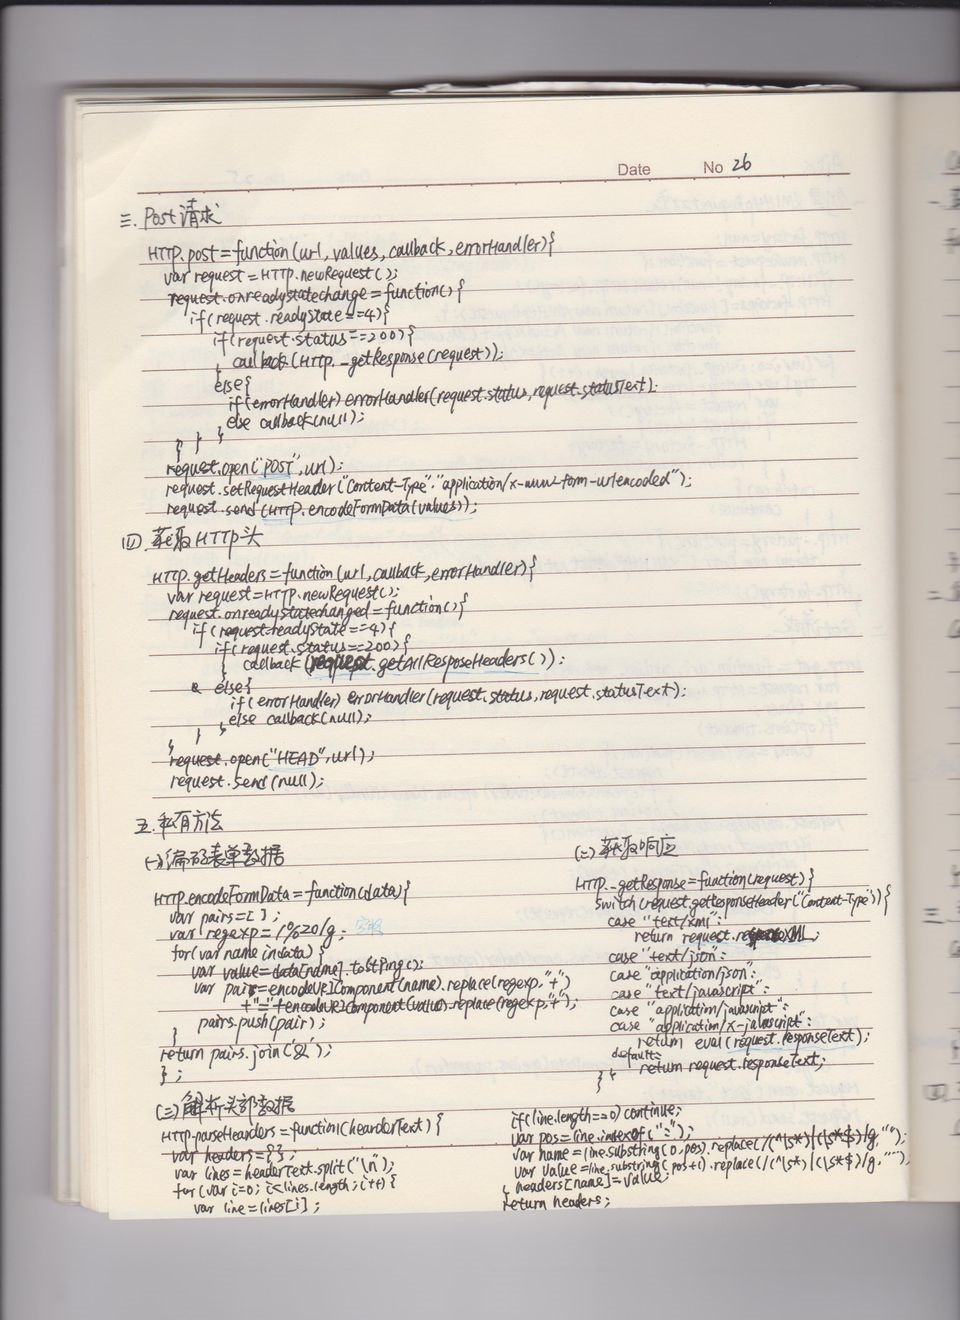 Date No 26
三. Post请求
HTTP.post=function(url, values, callback, errorHandler){
var request=HTTP.newRequest();
request.onreadystatechange=function(){
if(request.readyState==4){
if(request.status==200){
callback(HTTP._getResponse(request));
}
else{
if(errorHandler) errorHandler(request.status,request.statusText);
else callback(null);
} } }
}
request.open("POST",url);
request.setRequestHeader("Content-Type","application/x-www-form-urlencoded");
request.send(HTTP.encodeFormData(values));
四 获取HTTP头
HTTP.getHeaders=function(url,callback,errorHandler){
var request=HTTP.newRequest();
request.onreadystatechanged=function(){
if(request.readyState==4){
if(request.status==200){
callback(request.getAllResposeHeaders());
}
else{
if(errorHandler) errorHandler(request.status,request.statusText);
else callback(null);
} } }
request.open("HEAD",url);
request.send(null);
五.私有方法
(一)编码表单数据
HTTP.encodeFormData=function(data){
var pairs=[];
var regexp=/%20/g; 空格
for(var name in data){
var value=data[name].toString();
var pair=encodeURIComponent(name).replace(regexp,"+")
+"="+encodeURIComponent(value).replace(regexp,"+");
pairs.push(pair);
}
return pairs.join('&');
};
(二)获取响应
HTTP._getResponse=function(request){
switch(request.getResponseHeader("Content-Type")){
case "text/xml":
return request.responseXML;
case "text/json":
case "application/json":
case "text/javascript":
case "application/javascript":
case "application/x-javascript":
return eval(request.responseText);
default:
return request.responseText;
} }
(三)解析头部数据
HTTP.parseHearders=function(hearderText){
var headers={};
var lines=headerText.split("\n");
for(var i=0; i<lines.length; i++){
var line=lines[i];
if(line.length==0) continue;
var pos=line.indexOf(":");
var name=line.substring(0,pos).replace(/(^\s*)|(\s*$)/g,"");
var value=line.substring(pos+1).replace(/(^\s*)|(\s*$)/g,"");
headers[name]=value;
}
return headers;